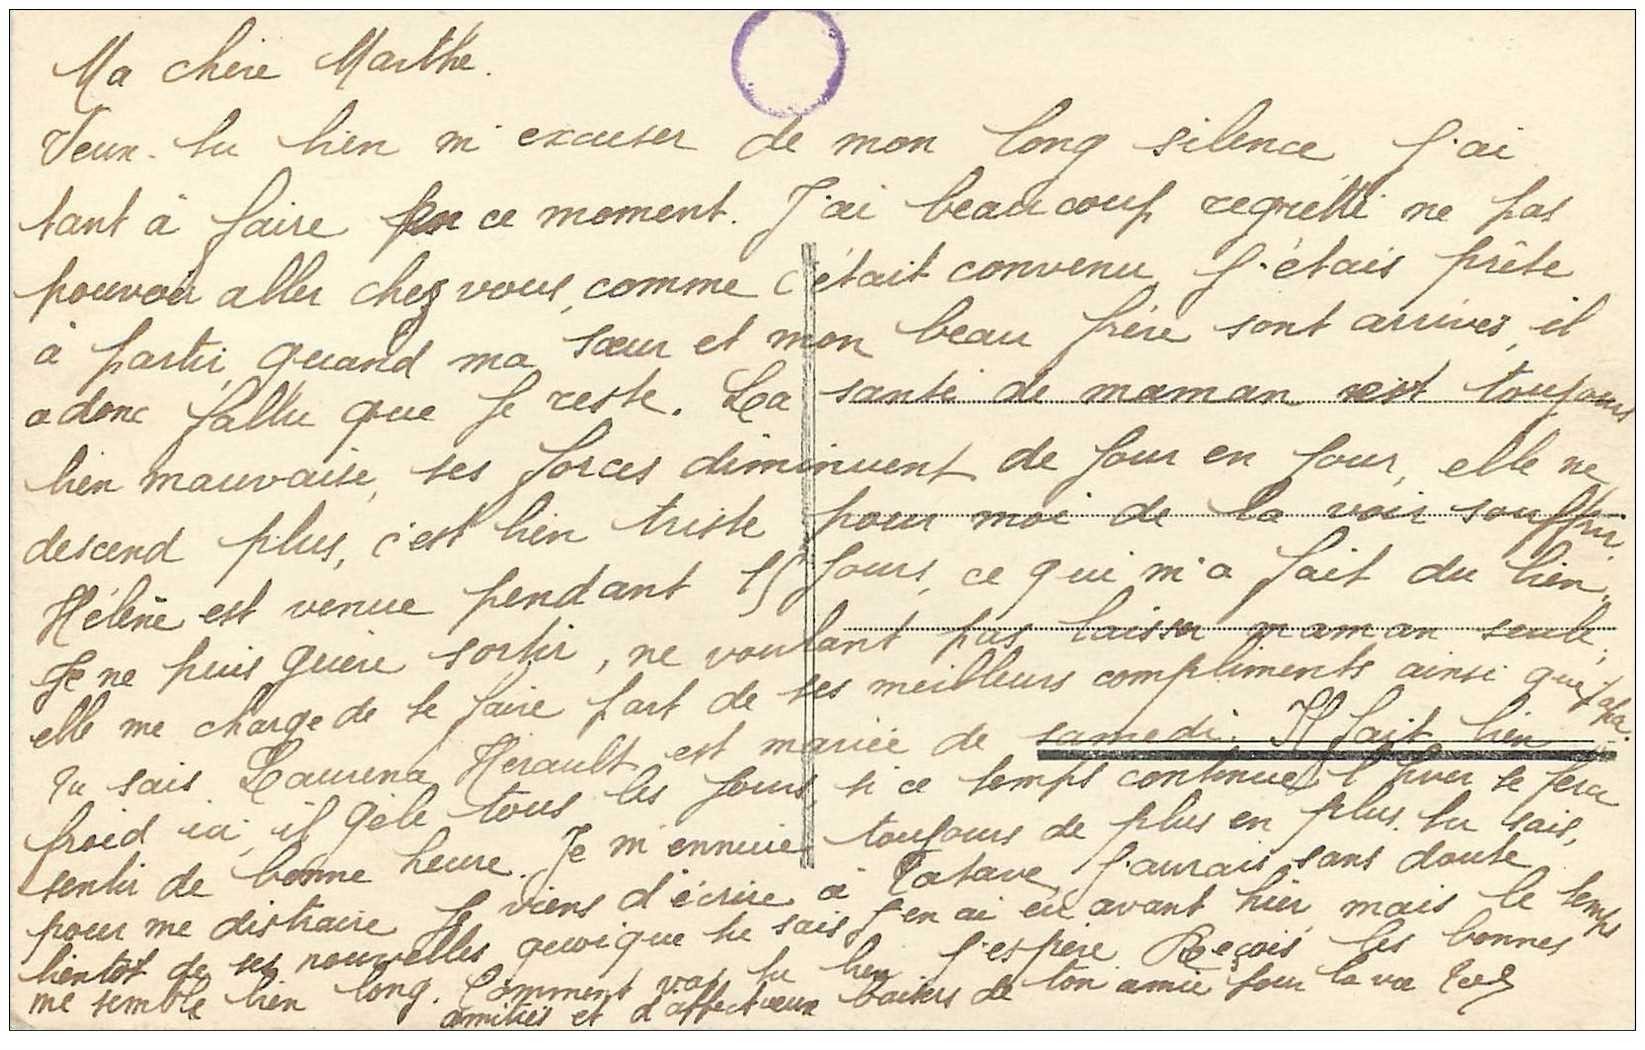 Ma chère Marthe.
Veux-tu bien m'excuser de mon long silence, j'ai
tant à faire en ce moment. J'ai beaucoup regretté ne pas
pouvoir aller chez vous, comme c'était convenu, j'étais prête
à partir, quand ma sœur et mon beau frère sont arrivés, il
a donc fallu que je reste. La santé de maman est toujours
bien mauvaise, ses forces diminuent de jour en jour, elle ne
descend plus, c'est bien triste pour moi de la voir souffrir.
Hélène est venue pendant 15 jours, ce qui m'a fait du bien.
Je ne puis guère sortir, ne voulant pas laisser maman seule,
elle me charge de te faire part de ses meilleurs compliments ainsi que papa.
Tu sais Laurena Hérault est mariée de samedi. Il fait bien
froid ici, il gèle tous les jours, si ce temps continue, l'hiver se fera
sentir de bonne heure. Je m'ennuie toujours de plus en plus, tu sais,
pour me distraire je viens d'écrire à Tatave, j'aurais sans doute
bientôt de ses nouvelles quoique tu sais j'en ai eu avant hier, mais le temps
me semble bien long. Comment vas tu bien j'espère Reçois, les bonnes
amitiés et d'affectueux baisers de ton amie pour la vie